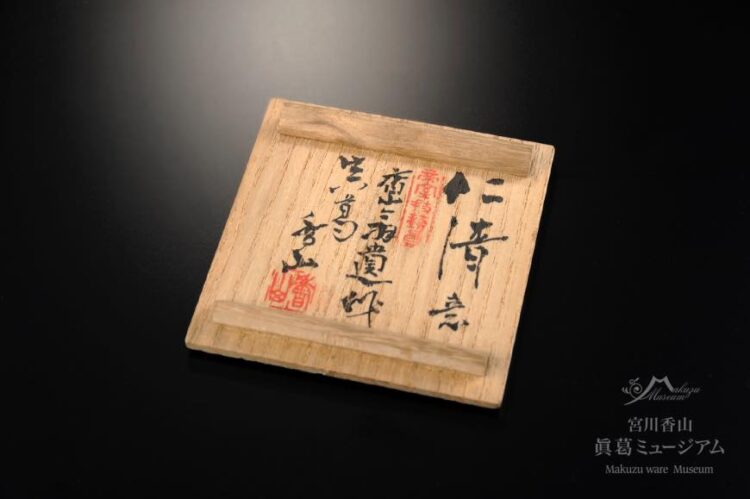 仁清意
帝室技藝員
香山翁遺作
真葛
香山
Makuzu
Museum
宮川香山
眞葛ミュージアム
Makuzu ware Museum